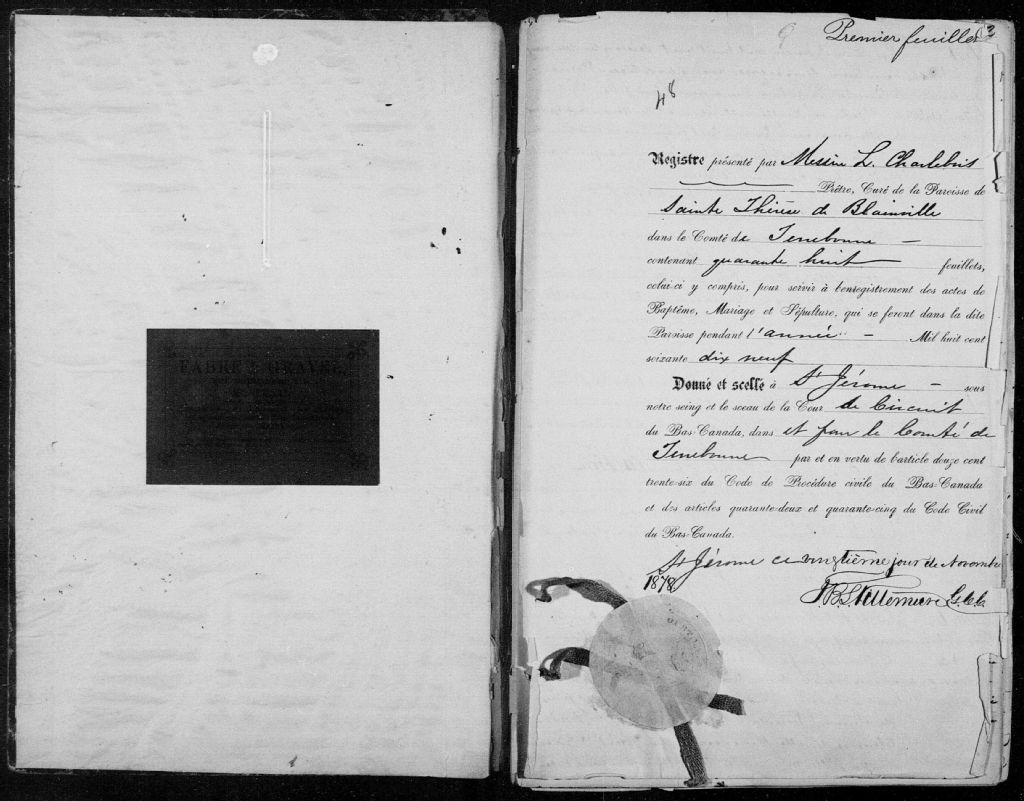 FABRE & GRAVEL
Premier feuillet
48
Registre présenté par Messire L. Charlebois
Prêtre, Curé de la Paroisse de
Sainte Thérèse de Blainville
dans le Comté de Terrebonne –
contenant quarante huit feuillets,
celui-ci y compris, pour servir à l'enregistrement des actes de
Baptême, Mariage et Sépulture, qui se feront dans la dite
Paroisse pendant l'année – Mil huit cent
soixante dix neuf
Donné et scellé à St Jérome – sous
notre seing et le sceau de la Cour de Circuit
du Bas-Canada, dans et pour le Comté de
Terrebonne par et en vertu de l'article douze cent
trente-six du Code de Procédure civile du Bas-Canada
et des articles quarante-deux et quarante-cinq du Code Civil
du Bas-Canada.
St Jérome ce vingtième jour de Novembre
1878